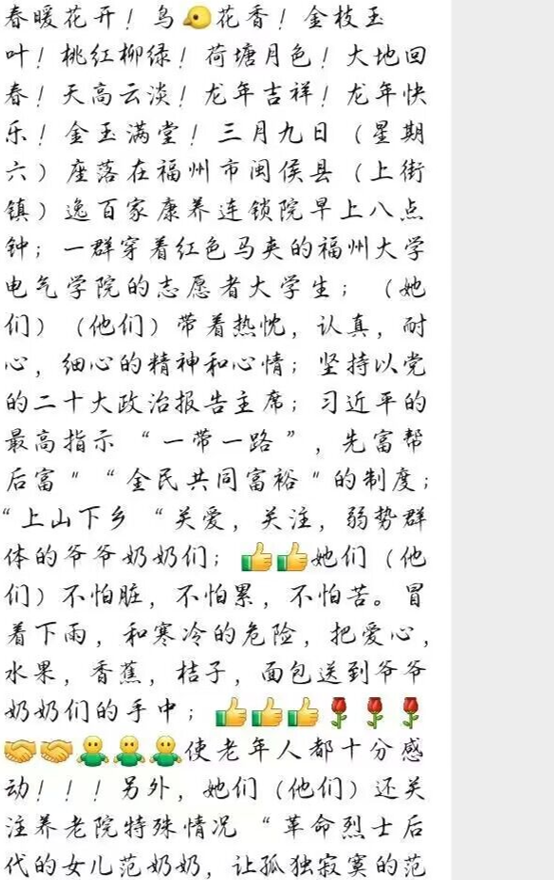 春暖花开！鸟🐤花香！金枝玉
叶！桃红柳绿！荷塘月色！大地回
春！天高云淡！龙年吉祥！龙年快
乐！金玉满堂！三月九日（星期
六）座落在福州市闽侯县（上街
镇）逸百家康养连锁院早上八点
钟；一群穿着红色马夹的福州大学
电气学院的志愿者大学生；（她
们）（他们）带着热忱，认真，耐
心，细心的精神和心情；坚持以党
的二十大政治报告主席；习近平的
最高指示“一带一路”，先富帮
后富"“全民共同富裕"的制度；
“上山下乡“关爱，关注，弱势群
体的爷爷奶奶们；👍👍她们（他
们）不怕脏，不怕累，不怕苦。冒
着下雨，和寒冷的危险，把爱心，
水果，香蕉，桔子，面包送到爷爷
奶奶们的手中；👍👍👍🌹🌹🌹
🤝🤝🤗🤗🤗使老年人都十分感
动！！！另外，她们（他们）还关
注养老院特殊情况“革命烈士后
代的女儿范奶奶，让孤独寂寞的范